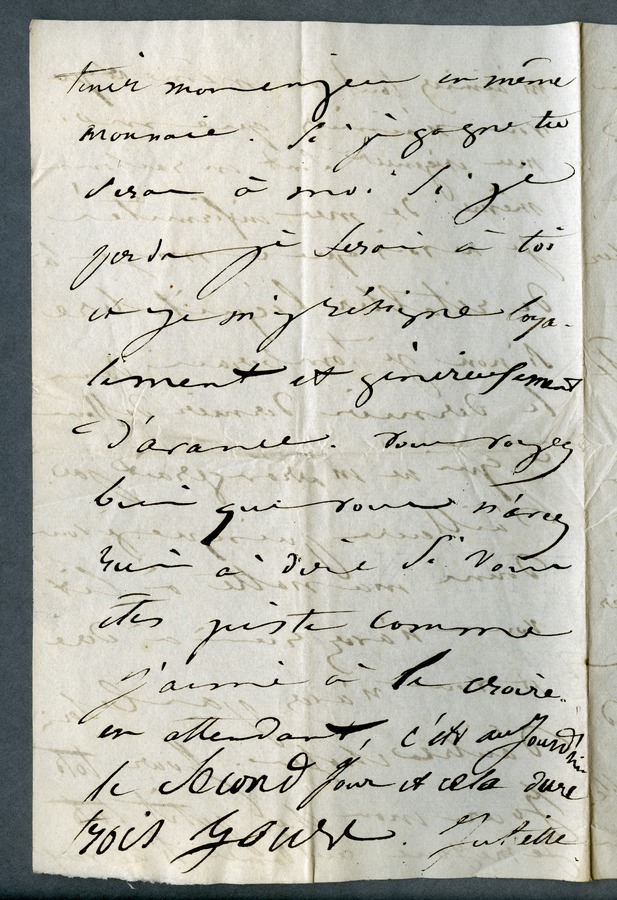 tenir mon enjeu en même
monnaie. Si je gagne tu
seras à moi. Si je
perds je serai à toi
et je m'y résigne loya-
lement et généreusement
d'avance. Vous voyez
bien que vous n'avez
rien à dire si vous
êtes juste comme
j'aime à le croire.
en attendant, c'est aujourd'hui
le second jour et cela dure
trois jours. Juliette